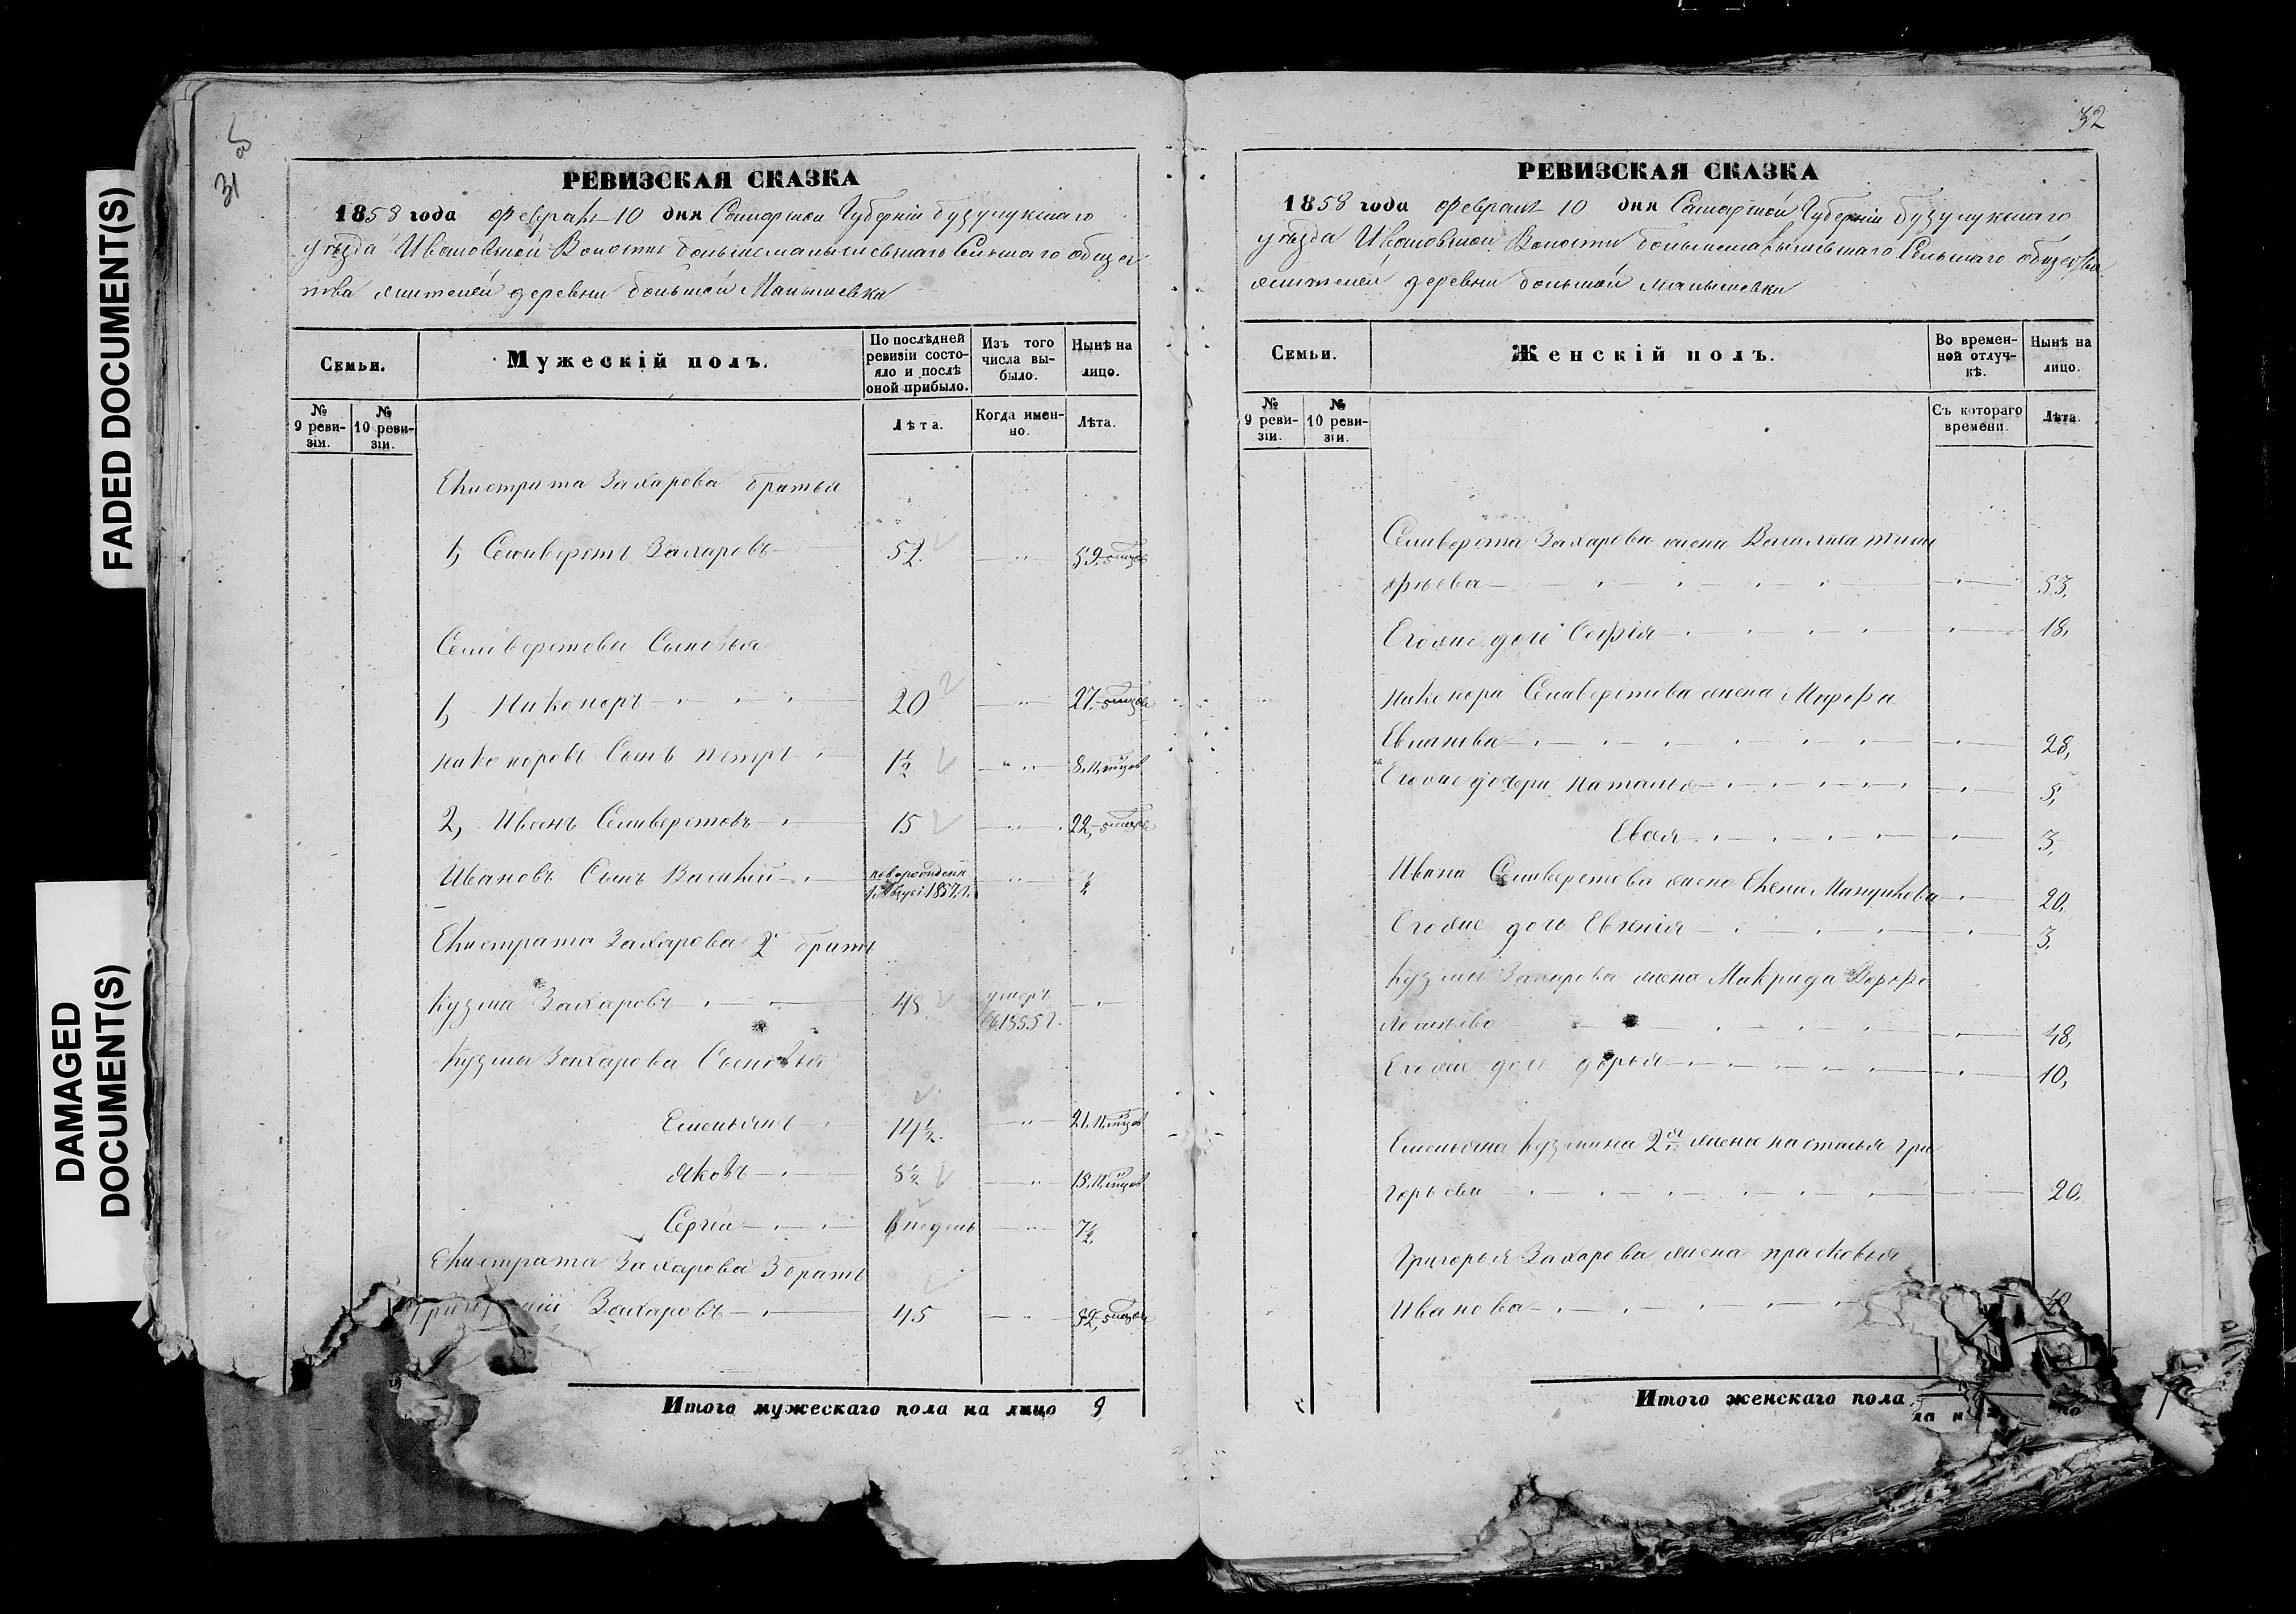 FADED DOCUMENT(S)
DAMAGED
DOCUMENT(S)
31 об
РЕВИЗСКАЯ СКАЗКА
1858 года Февраля 10 дня Самарской Губернiи бузулукскаго
уѣзда Ивановской Волости большемалышевскаго Сельскаго общес
тва жителей деревни большой Малышевки
Семьи.
Мужескiй полъ.
По послѣдней
ревизiи состо-
яло и послѣ
оной прибыло.
Изъ того
числа вы-
было.
Нынѣ на
лицо.
№
9 реви-
зiи.
№
10 реви-
зiи.
Лѣта.
Когда имен-
но.
Лѣта.
Екистрата Захарова братья
1, Селиверстъ Захаровъ 52. 59.
Селиверстовы Сыновья
1, Никоноръ 20 27.
никоноровъ Сынъ петръ 1½ 8.
2, Иванъ Селиверстовъ 15 22,
Ивановъ Сынъ Василiй новорожденъ ½
1857.г.
Екистрата Захарова 2й братъ
Кузма Захаровъ 48. умеръ
въ 1855 г.
Кузмы Захарова Сыновья
Емельянъ 14½. 21.
Яковъ 8½ 15.
Сергiй 6 недель 7½
Екистрата Захарова 3 братъ
Захаровъ 45 52,
Итого мужескаго пола на лицо 9
32
РЕВИЗСКАЯ СКАЗКА
1858 года Февраля 10 дня Самарской Губернiи бузулукскаго
уѣзда Ивановской Волости большемалышевскаго Сельскаго общества
жителей деревни большой малышевки
Семьи.
Женскiй полъ.
Во времен-
ной отлуч-
кѣ.
Нынѣ на
лицо.
№
9 реви-
зiи.
№
10 реви-
зiи.
Съ котораго
времени.
Лѣта.
Селиверста Захарова жена Василиса тимо
фѣева 53,
Егоже дочь Софiя 18,
никонора Селиверстова жена Марфа
28,
Егоже дочери Наталья 5,
3,
Ивана Селиверстова жена Елена 20,
Егоже дочь Евгенiя 3,
Кузмы Захарова жена Макрида
48,
Егоже дочь дарья 10,
Емельяна Кузмина 2я жена настасья Гри
горьева 20,
Григорья Захарова жена прасковья
Иванова
Итого женскаго пола